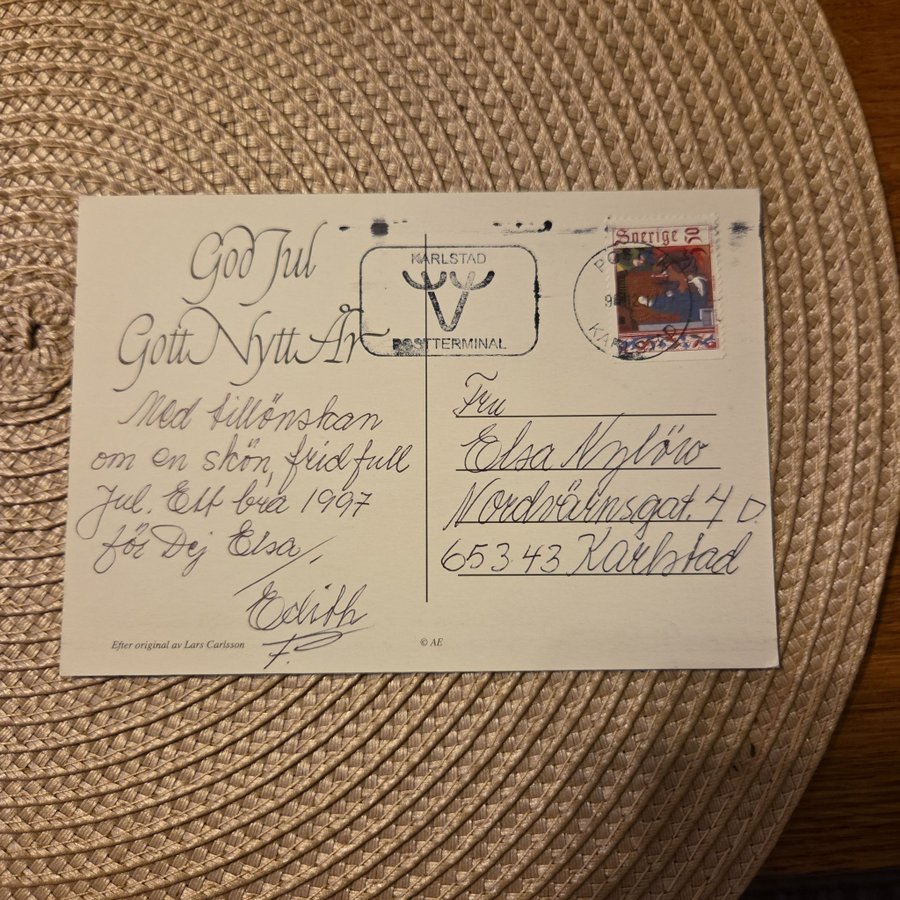 God Jul
Gott Nytt År
Med tillönskan
om en skön, fridfull
Jul. Ett bra 1997
för Dej Elsa
Edith
F.
Efter original av Lars Carlsson
© AE
KARLSTAD
POSTTERMINAL
Sverige
Fru
Elsa Nylöw
Nordvärnsgat. 4 D
653 43 Karlstad